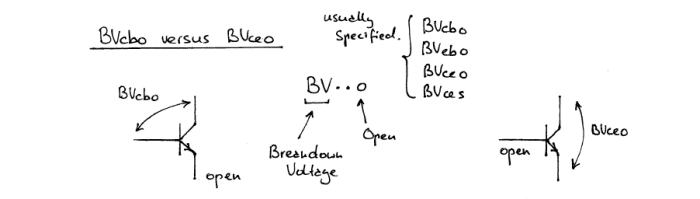 BVcbo versus BVceo
usually
Specified.
BVcbo
BVebo
BVceo
BVces
BVcbo
open
BV..o
Breakdown
Voltage
Open
BVceo
open